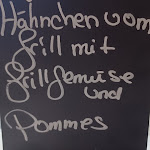 Hähnchen vom
Grill mit
Grillgemüse
und
Pommes